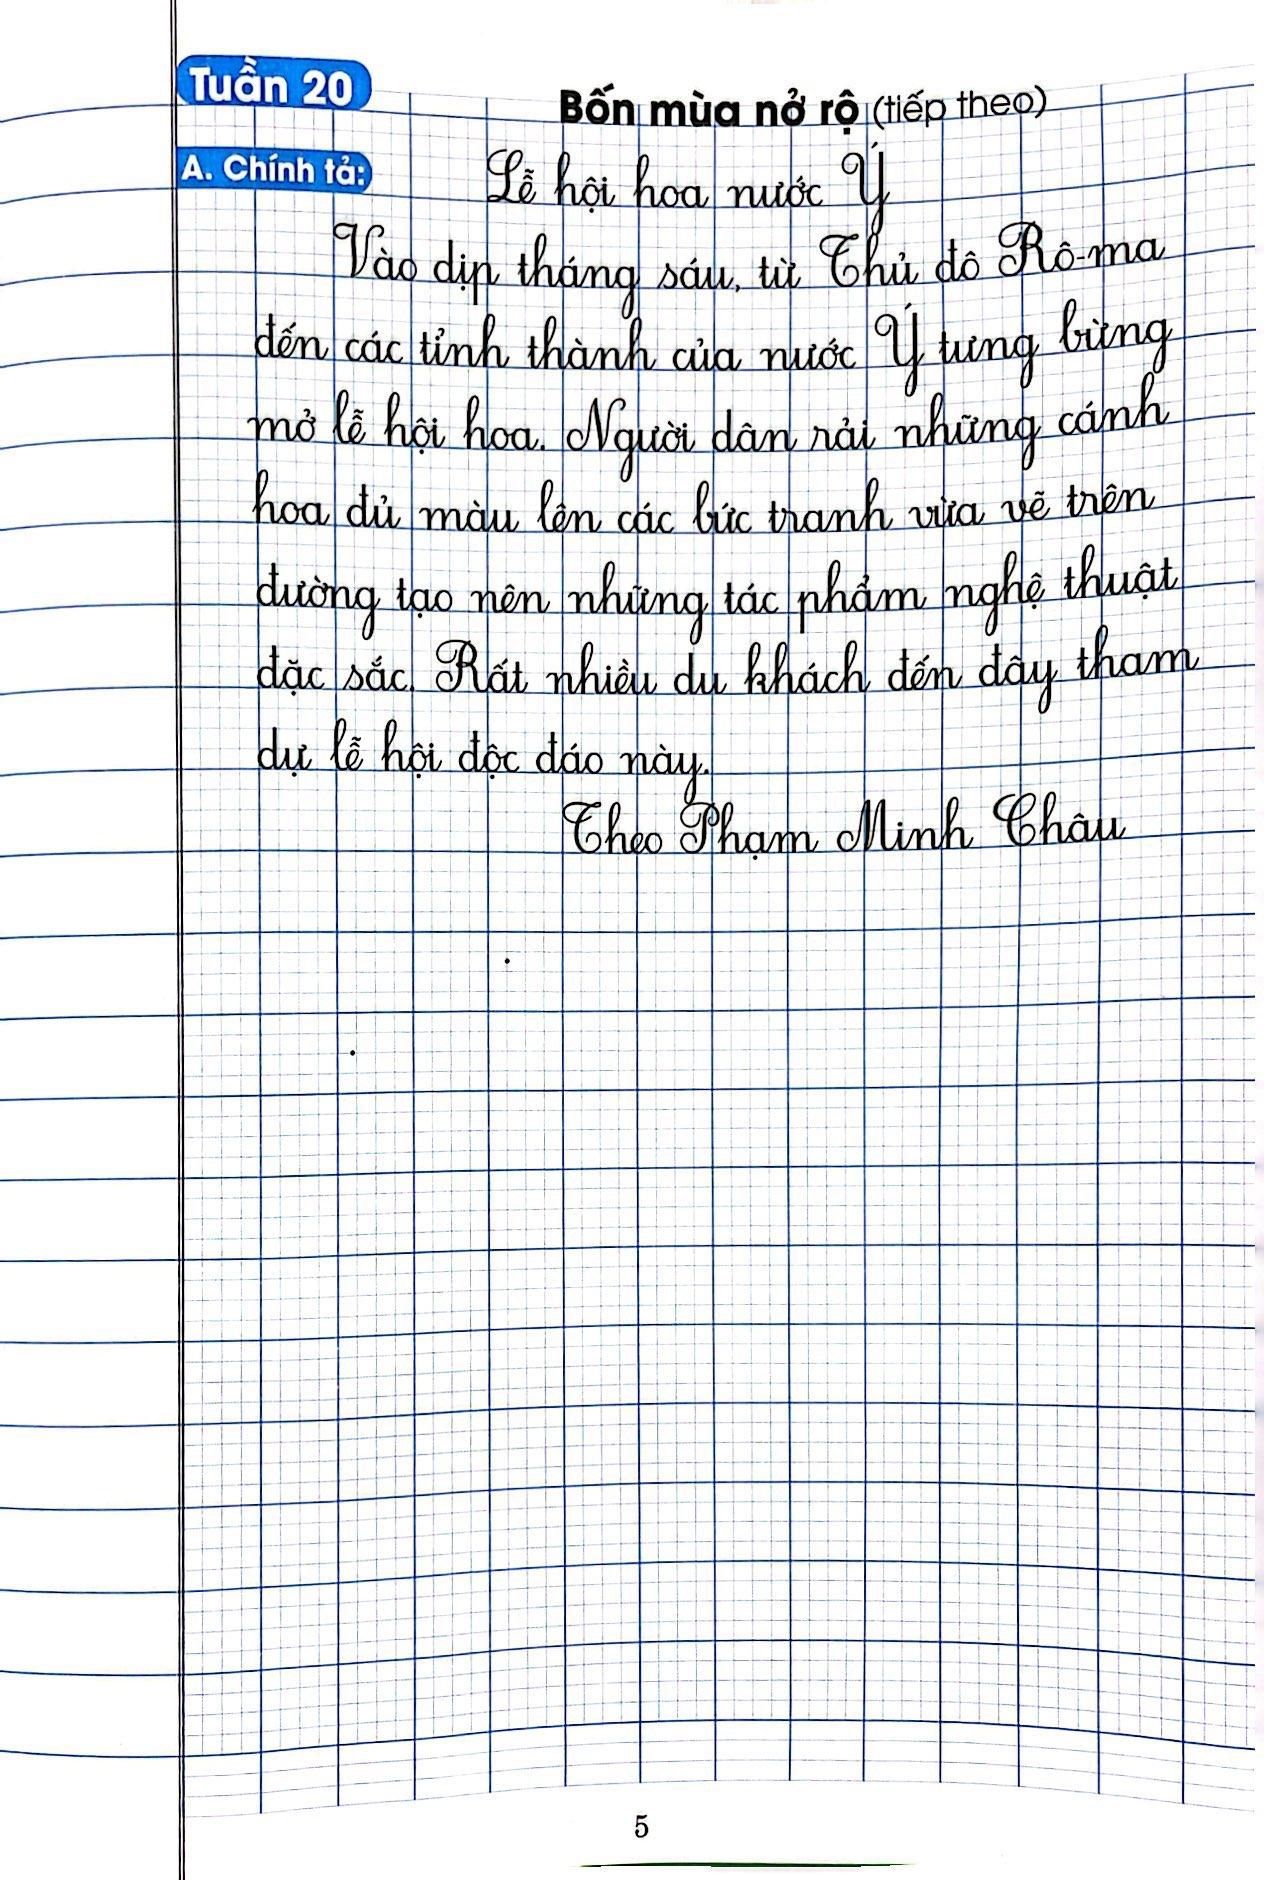 Tuần 20
Bốn mùa nở rộ (tiếp theo)
A. Chính tả:
Lễ hội hoa nước Ý
Vào dịp tháng sáu, từ Thủ đô Rô-ma
đến các tỉnh thành của nước Ý tưng bừng
mở lễ hội hoa. Người dân rải những cánh
hoa đủ màu lên các bức tranh vừa vẽ trên
đường tạo nên những tác phẩm nghệ thuật
đặc sắc. Rất nhiều du khách đến đây tham
dự lễ hội độc đáo này.
Theo Phạm Minh Châu
5